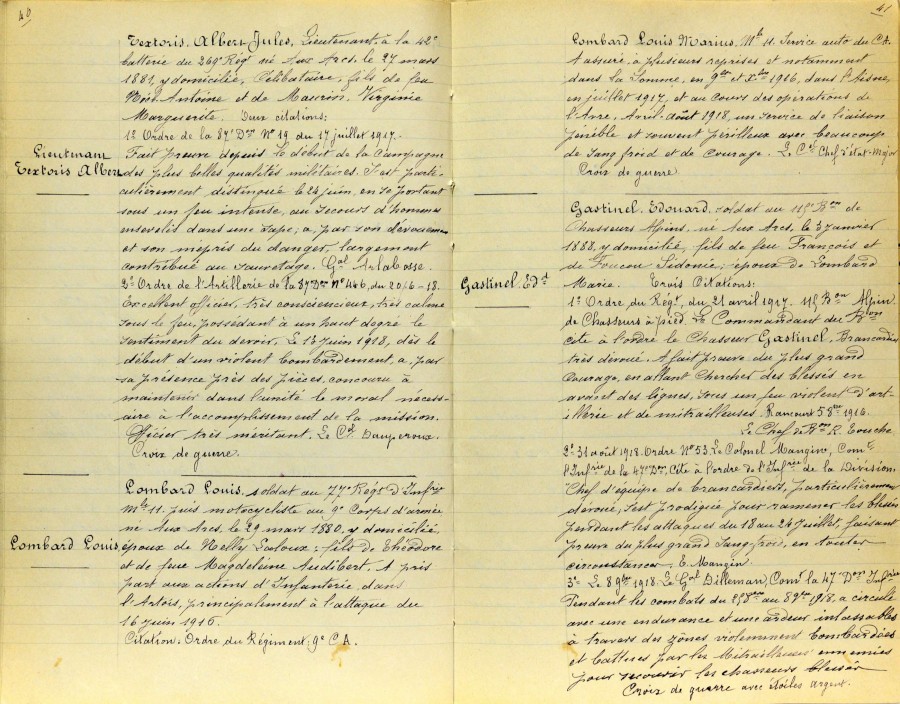 40
Textoris, Albert Jules, Lieutenant, à la 42e
batterie du 269e Régt né aux Arcs, le 27 mars
1881, y domicilié, Célibataire, fils de feu
Antoine et de Maurin, Virginie
Marguerite. Deux citations:
1º Ordre de la 87e Don Nº 19 du 17 juillet 1917.
Lieutenant
Textoris Albert
Fait preuve depuis le début de la Campagne
des plus belles qualités militaires. S'est parti-
culièrement distingué le 24 juin, en se portant
sous un feu intense, au secours d'hommes
ensevelis dans une sape; a, par son dévouement
et son mépris du danger, largement
contribué au sauvetage. Gal Arlabosse.
2º Ordre de l'Artillerie de la 87e Don Nº 446, du 20/6-18.
Excellent officier, très consciencieux, très calme
sous le feu, possédant à un haut degré le
sentiment du devoir. Le 13 juin 1918, dès le
début d'un violent bombardement, a, par
sa présence près des pièces, concouru à
maintenir dans l'unité le moral nécess-
aire à l'accomplissement de la mission.
Officier très méritant. Le Cel
Croix de guerre.
Lombard Louis
Lombard Louis, soldat au 77e Régt d'Infrie
Mle 11. puis motocycliste au 9e Corps d'armée
né aux Arcs, le 29 mars 1880, y domicilié,
époux de Nelly Laloux; fils de Théodore
et de feue Magdeleine Audibert. A pris
part aux actions d'Infanterie dans
l'Artois, principalement à l'attaque du
16 juin 1916.
Citation: Ordre du Régiment: 9e C.A.
41
Lombard Louis Marius, Mle 11. Service auto du C.A.
A assuré, à plusieurs reprises et notamment
dans la Somme, en 9bre et Xbre 1916, dans l'Aisne,
en juillet 1917, et au cours des opérations de
l'Avre, Avril, août 1918, un service de liaison
pénible et souvent périlleux avec beaucoup
de sang froid et de courage. Le Cel Chef d'état-Major
Croix de guerre.
Gastinel Edd
Gastinel, Edouard, soldat au 115e Bon de
Chasseurs Alpins, né aux Arcs, le 3 janvier
1888, y domicilié, fils de feu François et
de Foucou Sidonie; époux de Lombard
Marie. Trois Citations:
1º Ordre du Régt, du 21 avril 1917. 115e Bon Alpin
de Chasseurs à pied. Le Commandant du Bon
cite à l'ordre le Chasseur Gastinel, Brancardier
très dévoué. A fait preuve du plus grand
Courage, en allant chercher des blessés en
avant des lignes, sous un feu violent d'art-
illerie et de mitrailleuses. Rancourt 5 8bre 1916.
Le Chef de Bon R. Touche
2º 31 août 1918. Ordre Nº 53. Le Colonel Mangin, Comt
l'Infrie de la 47e Don, Cite à l'ordre de l'Infrie de la Division.
"Chef d'équipe de brancardiers, particulièrement
dévoué, s'est prodigué pour ramener les blessés
pendant les attaques du 18 au 24 Juillet, faisant
preuve du plus grand sang froid, en toutes
circonstances. E. Mangin
3º Le 8 9bre 1918. Le Gal Dilleman, Comt la 47e Don Infrie
Pendant les combats du au 8 9bre 1918, a circulé
avec une endurance et une ardeur inlassables
à travers des zones violemment bombardées
et battues par les mitrailleuses ennemies
pour secourir les chasseurs blessés
Croix de guerre avec étoiles argent.